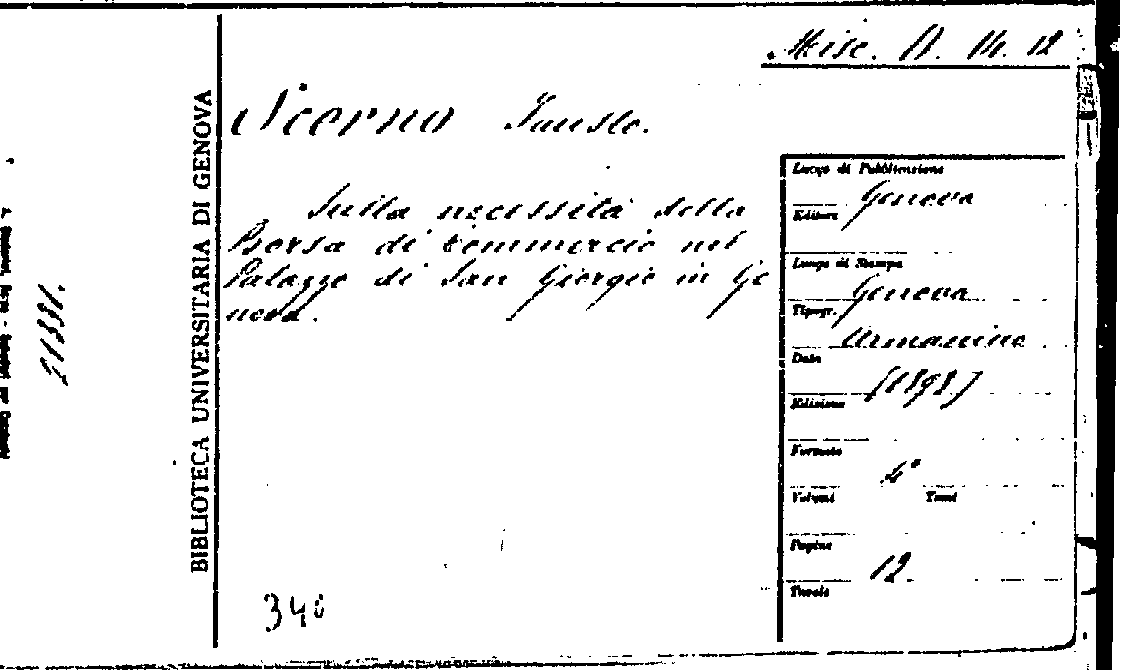 Misc. A. 14. 12
Scorno Fausto.
Sulla necessità della
Borsa di Commercio nel
Palazzo di San Giorgio in Ge
nova.
340
BIBLIOTECA UNIVERSITARIA DI GENOVA
Luogo di Pubblicazione
Genova
Editore
Luogo di Stampa
Genova
Tipogr.
Armanino
Data
[1898]
Edizione
Formato
4°
Volumi Tomi
Pagine
12
Tavole